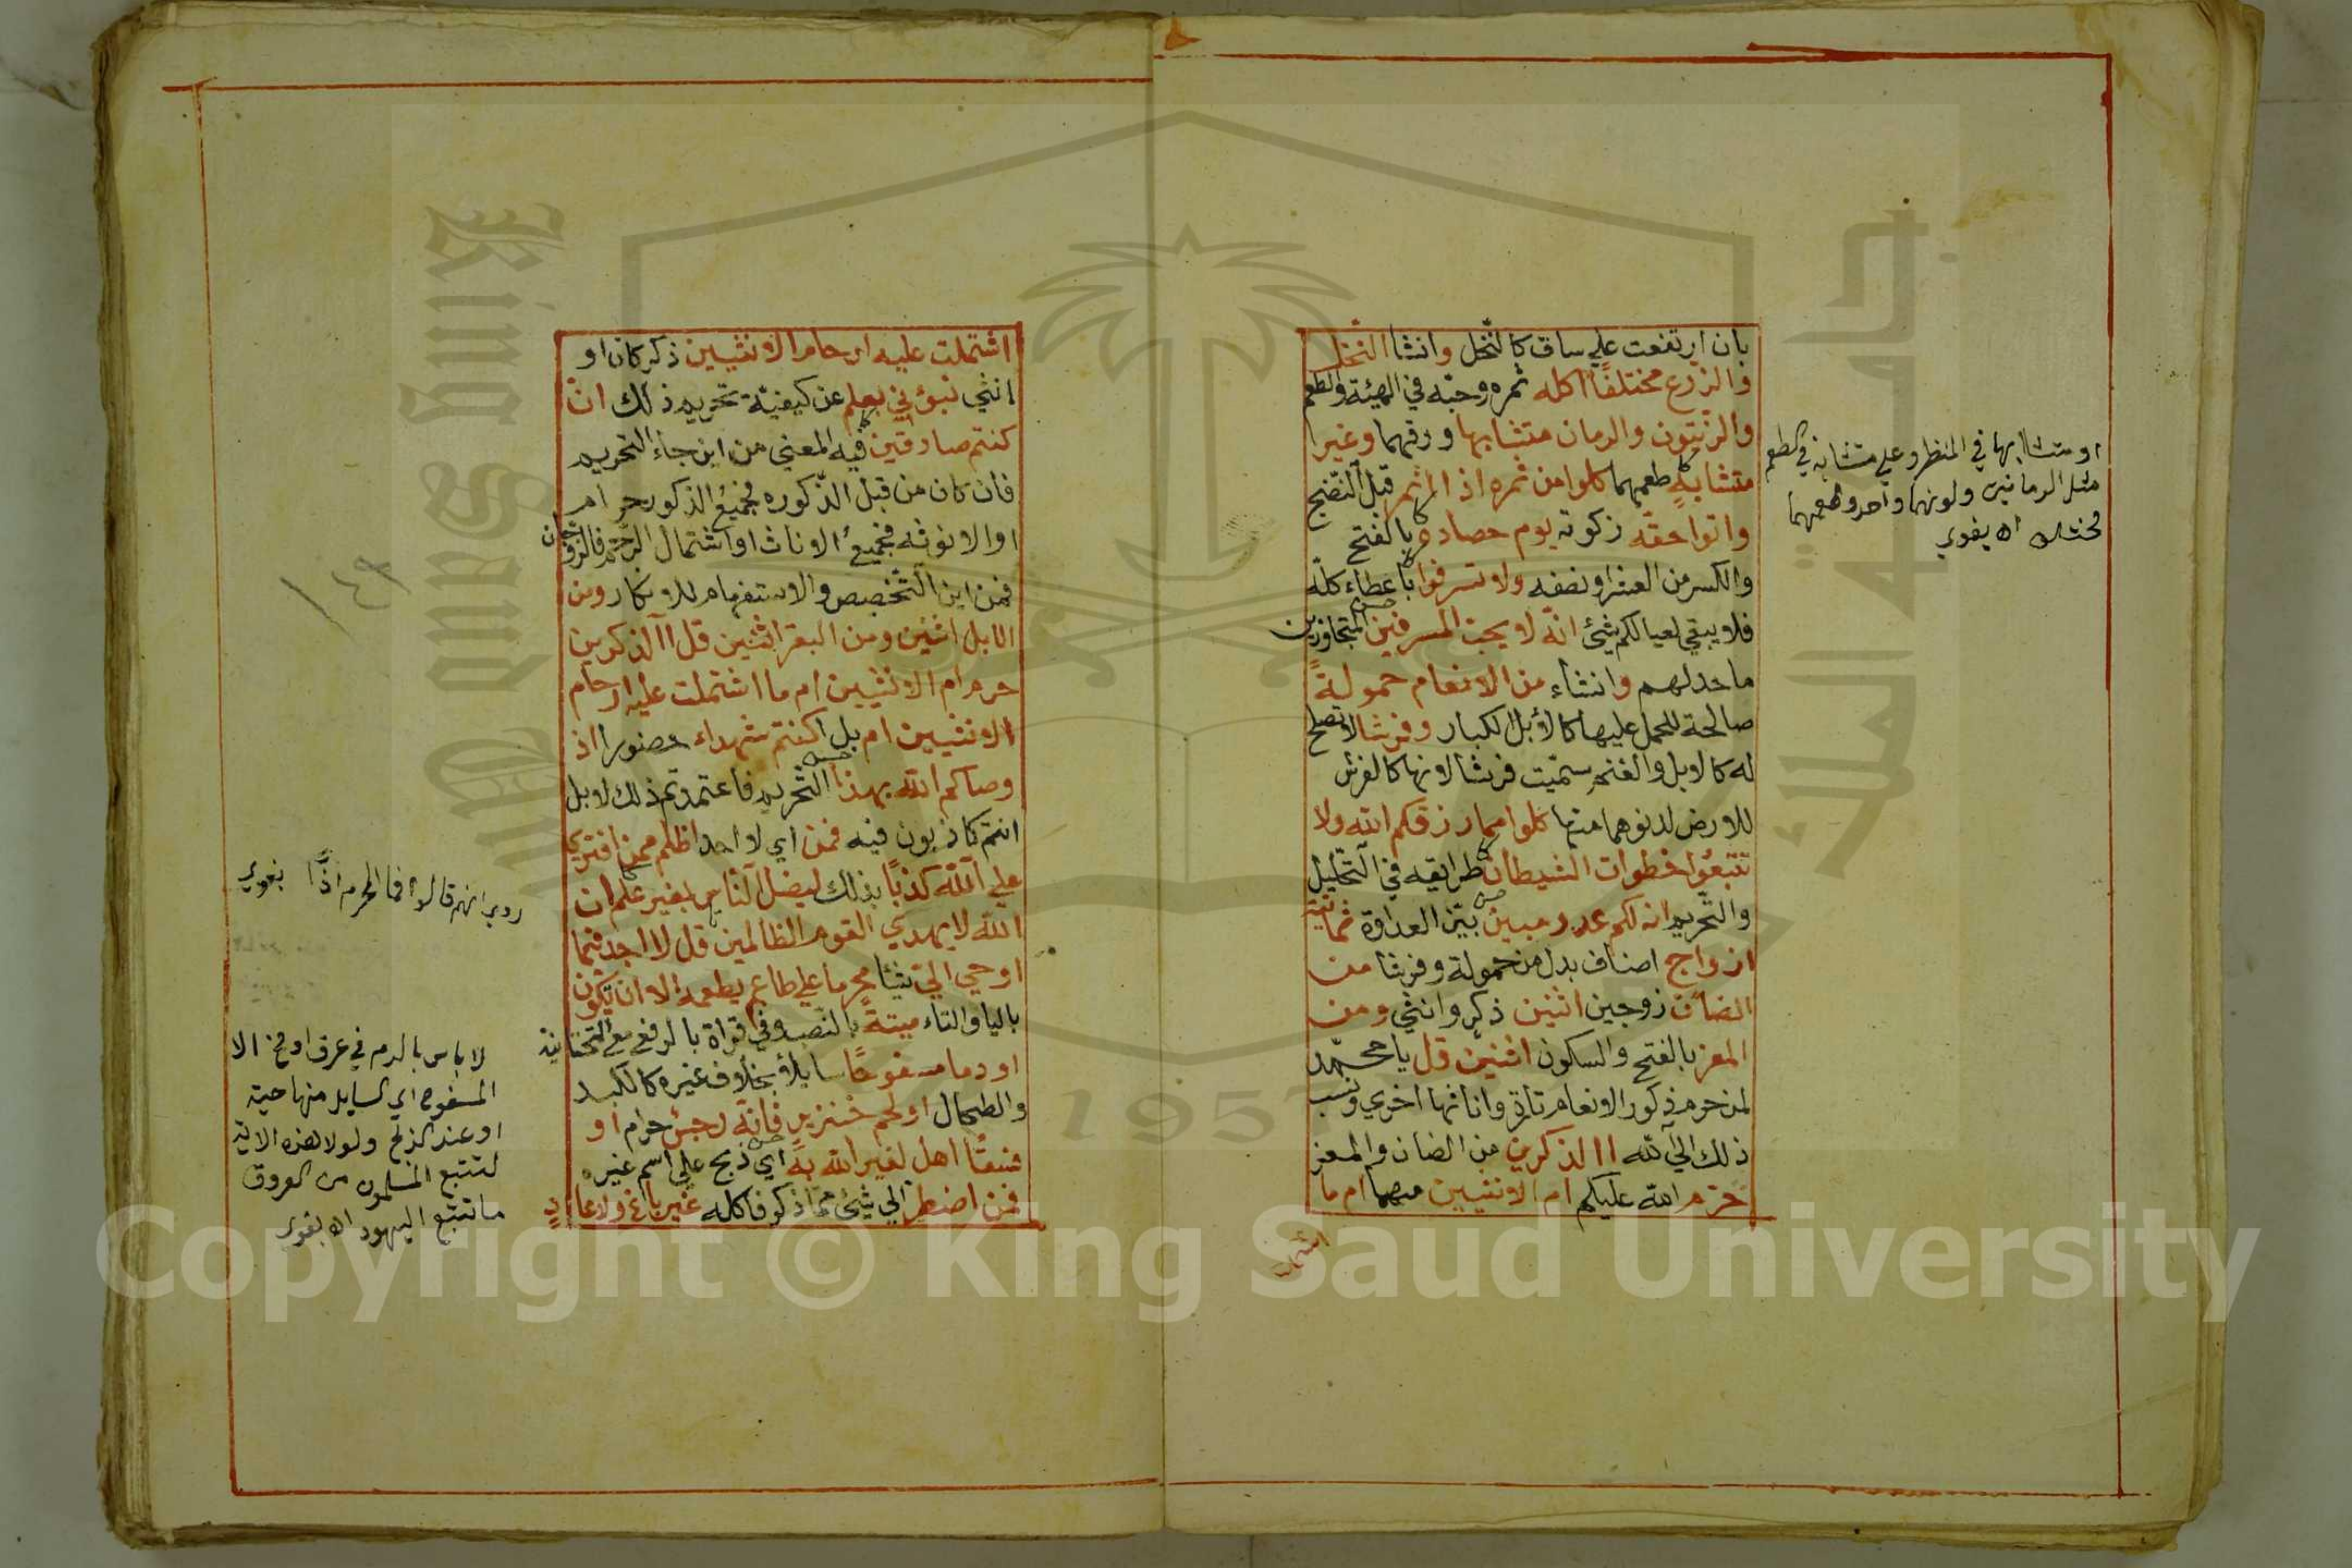 بان ارتفعت علي ساق كالنّخل وانشا النخل
والزرع مختلفًا اكله ثمره وحبّه في الهيئة والطعم
والزيتون والرمان متشابها ورقهما وغير
متشابه طعمهما كلوا من ثمره اذا اثمر قبل النضج
واتوا حقّه زكوته يوم حصاده بالفتح
والكسر من العشر او نصفه ولا تسرفوا باعطاء كلّه
فلا يبقي لعيالكم شئ انّه لا يحبّ المسرفين المتجاوزين
ما حد لهم وانشاء من الانعام حمولةً
صالحة للحمل عليها كالابل الكبار وفرشا لا تصلح
له كالابل والغنم سمّيت فرشا لانها كالفرش
للارض لدنوهما منها كلوا مما رزقكم الله ولا
تتبعوا خطوات الشيطان طرايقه في التحليل
والتحريم انه لكم عدو مبين بيّن العداوة ثمانية
ازواج اصناف بدل من حمولة وفرشا من
الضان زوجين اثنين ذكر وانثي ومن
المعز بالفتح والسكون اثنين قل يا محمّد
لمن حرم ذكور الانعام تارة واناثها اخري ونسب
ذلك الي الله االذكرين من الضان والمعز
حرم الله عليكم ام الانثيين منهما ام ما
اشتملت
او متشابها في المنظر وغير متشابه في الطعم
مثل الرمانين ولونهما واحد وطعمهما
مختلف اه بغوي
اشتملت عليه ارحام الانثيين ذكر كان او
انثي نبؤني بعلم عن كيفيّة تحريم ذلك ان
كنتم صادقين فيه المعني من اين جاء التحريم
فان كان من قبل الذّكوره فجميع الذكور حرام
او الانوثه فجميع الاناث او اشتمال الرّحم فالزوجان
فمن اين التّخصيص والاستفهام للانكار ومن
الابل اثنين ومن البقر اثنين قل االذكرين
حرم ام الانثيين ام ما اشتملت عليه ارحام
الانثيين ام بل اكنتم شهداء حضورا اذ
وصاكم الله بهذا التّحريم فاعتمدتم ذلك لا بل
انتم كاذبون فيه فمن اي لا احد اظلم ممن افتري
علي الله كذبًا بذلك ليضل النّاس بغير علم ان
الله لا يهدي القوم الظالمين قل لا اجد فيما
اوحي اليّ شيئا محرما علي طاعم يطعمه الا ان تكون
باليا والتاء ميتةً بالنّصب وفي قراة بالرفع مع التّحتانية
او دما مسفوحًا سايلاً بخلاف غيره كالكبد
والطحال او لحم خنزير فانّه رجس حرام او
فسقًا اهل لغير الله به اي ذبح علي اسم غيره
فمن اضطر الي شئ ممّا ذكر فاكله غير باغ ولا عاد
١٤٣
روي انهم قالوا فما المحرم اذًا بغوي
لا باس بالدم في عرق او مخ الا
المسفوح اي السايل منها حية
او عند الذبح ولولا هذه الاية
لتتبع المسلمون من العروق
ما تتبّع اليهود اه بغوي
جامعة الملك سعود
King Saud University
1957
Copyright © King Saud University